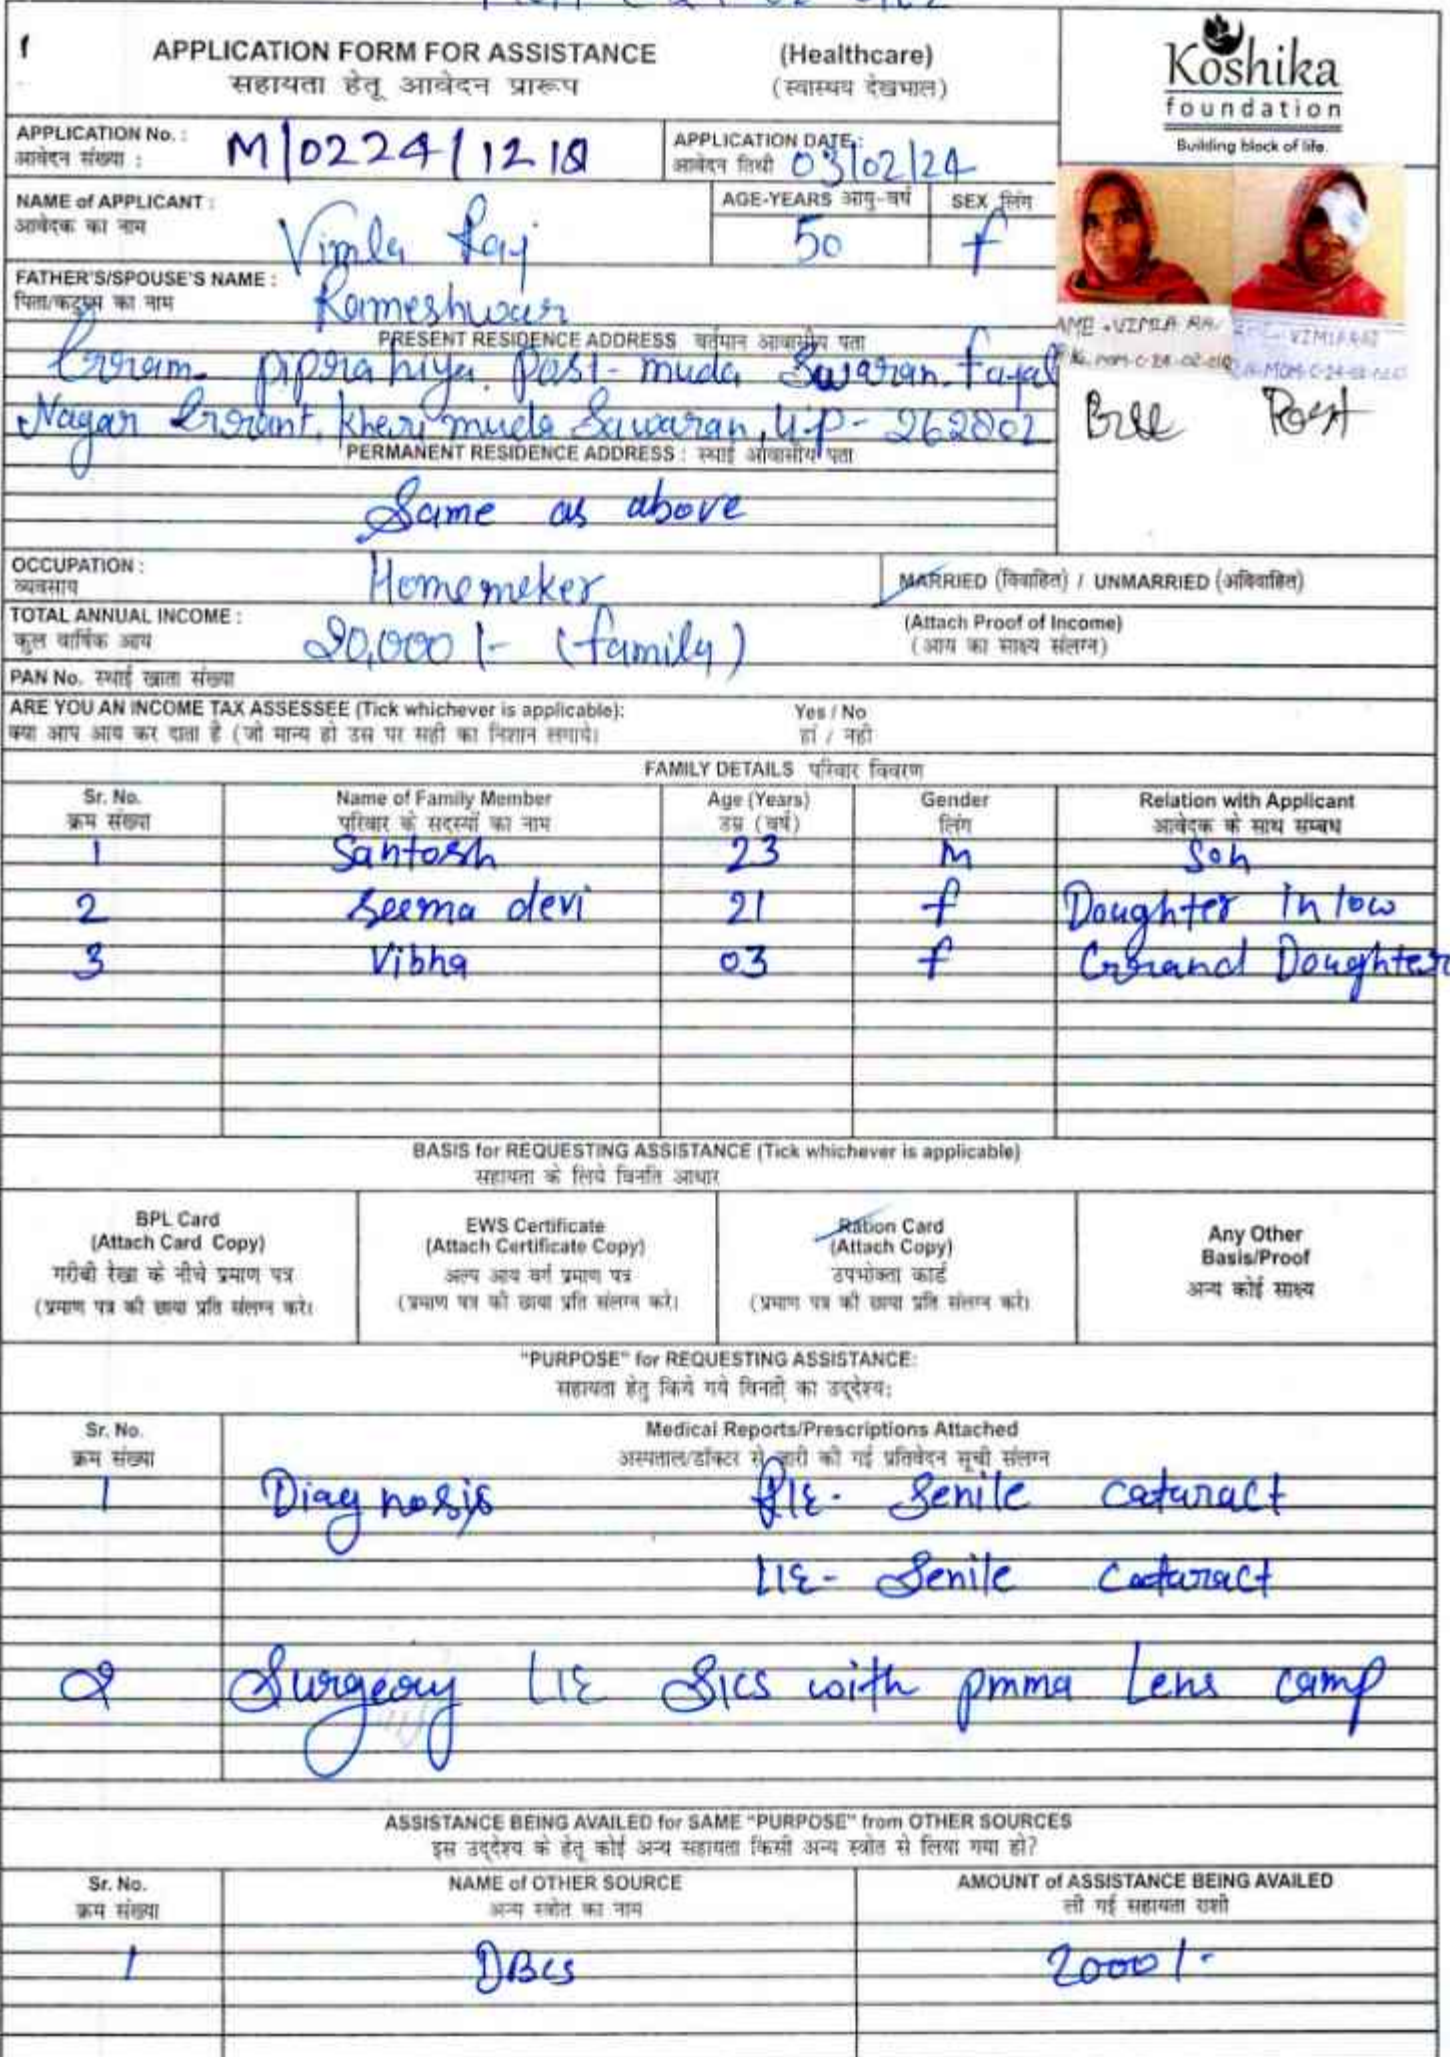 APPLICATION FORM FOR ASSISTANCE (Healthcare)
सहायता हेतू आवेदन प्रारूप (स्वास्थय देखभाल)
Koshika
foundation
Building block of life.
APPLICATION No. : M/0224/1218
आवेदन संख्या :
APPLICATION DATE : 03/02/24
आवेदन तिथी
NAME of APPLICANT : Vimla Raj
आवेदक का नाम
AGE-YEARS आयु-वर्ष 50
SEX लिंग f
FATHER'S/SPOUSE'S NAME : Rameshwar
पिता/कटुम्ब का नाम
VIMLA RAJ
Pre Post
PRESENT RESIDENCE ADDRESS वर्तमान आवासीय पता
Gram. piprahiya. Post- muda Sawaran. fajal
Nagar Grant, kheri muda Sawaran, U.P- 262802
PERMANENT RESIDENCE ADDRESS : स्थाई आवासीय पता
Same as above
OCCUPATION : Homemeker
व्यवसाय
MARRIED (विवाहित) / UNMARRIED (अविवाहित)
TOTAL ANNUAL INCOME : 20,000/- (family)
कुल वार्षिक आय
(Attach Proof of Income)
(आय का साक्ष्य संलग्न)
PAN No. स्थाई खाता संख्या
ARE YOU AN INCOME TAX ASSESSEE (Tick whichever is applicable): Yes / No
क्या आप आय कर दाता है (जो मान्य हो उस पर सही का निशान लगाये। हां / नही
FAMILY DETAILS परिवार विवरण
Sr. No. Name of Family Member Age (Years) Gender Relation with Applicant
क्रम संख्या परिवार के सदस्यों का नाम उम्र (वर्ष) लिंग आवेदक के साथ सम्बध
1 Santosh 23 M Son
2 Seema devi 21 f Doughter In low
3 Vibha 03 f Grand Doughter
BASIS for REQUESTING ASSISTANCE (Tick whichever is applicable)
सहायता के लिये विनति आधार
BPL Card
(Attach Card Copy)
गरीबी रेखा के नीचे प्रमाण पत्र
(प्रमाण पत्र की छाया प्रति संलग्न करे।
EWS Certificate
(Attach Certificate Copy)
अल्प आय वर्ग प्रमाण पत्र
(प्रमाण पत्र की छाया प्रति संलग्न करे।
Ration Card
(Attach Copy)
उपभोक्ता कार्ड
(प्रमाण पत्र की छाया प्रति संलग्न करे।
Any Other
Basis/Proof
अन्य कोई साक्ष्य
"PURPOSE" for REQUESTING ASSISTANCE:
सहायता हेतु किये गये विनती का उद्देश्य:
Sr. No. Medical Reports/Prescriptions Attached
क्रम संख्या अस्पताल/डॉक्टर से जारी की गई प्रतिवेदन सूची संलग्न
1 Diagnosis R/E- Senile cataract
L/E- Senile Cataract
2 Surgeory L/E SICS with pmma Lens camp
ASSISTANCE BEING AVAILED for SAME "PURPOSE" from OTHER SOURCES
इस उद्देश्य के हेतू कोई अन्य सहायता किसी अन्य स्त्रोत से लिया गया हो?
Sr. No. NAME of OTHER SOURCE AMOUNT of ASSISTANCE BEING AVAILED
क्रम संख्या अन्य स्त्रोत का नाम ली गई सहायता राशी
1 DBCS 2000/-